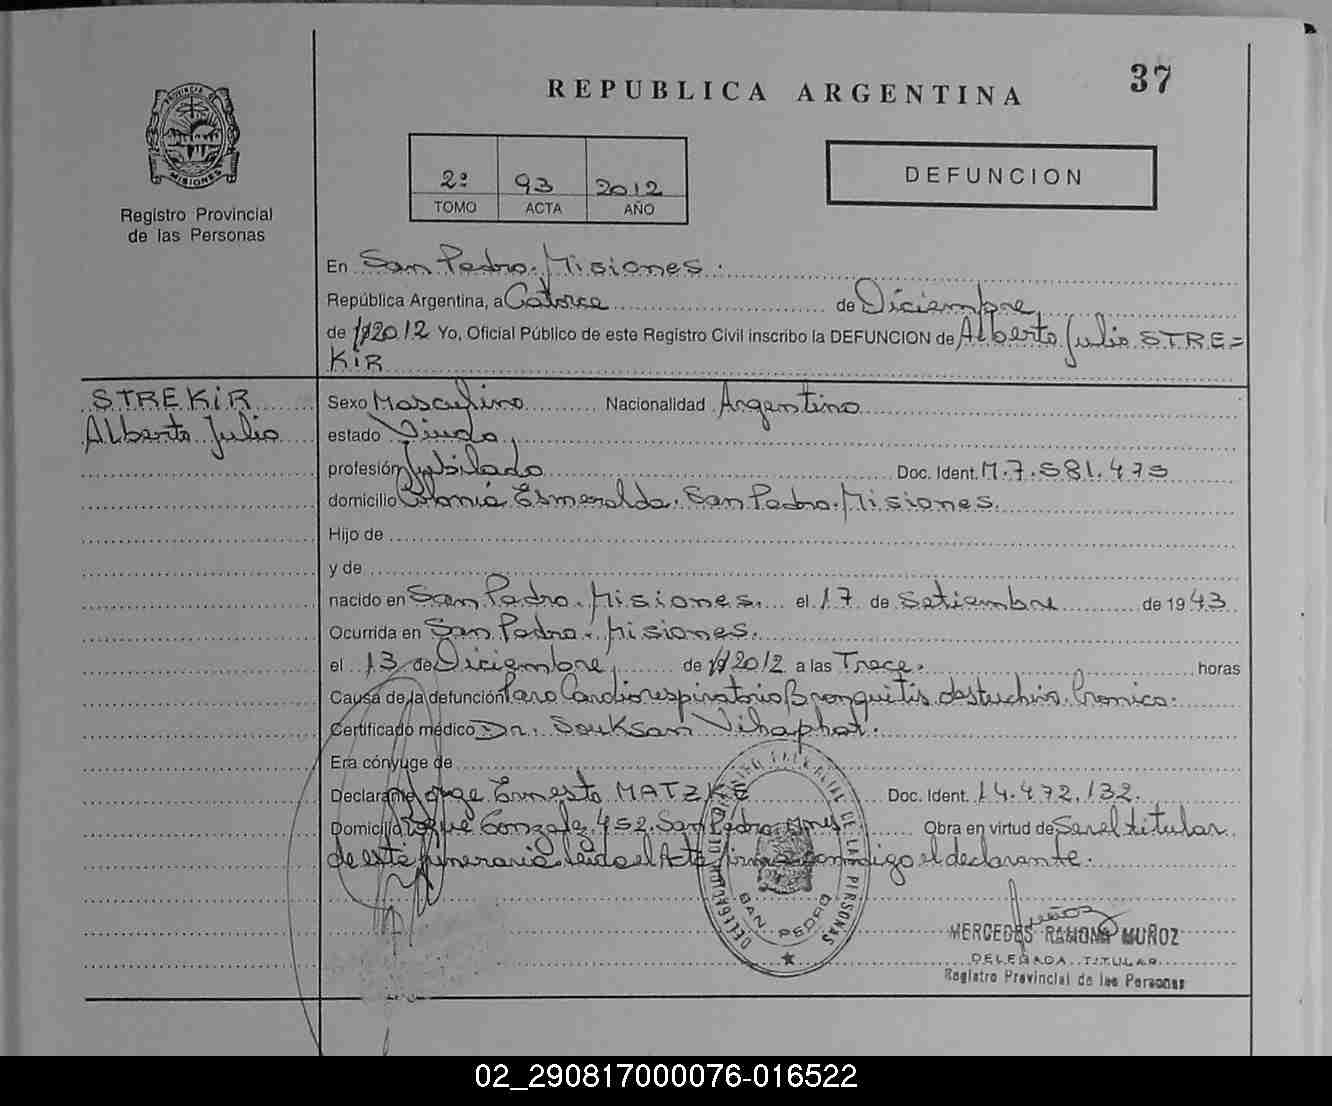 37
REPUBLICA ARGENTINA
PROVINCIA DE MISIONES
Registro Provincial
de las Personas
2º 93 2012
TOMO ACTA AÑO
DEFUNCION
En San Pedro. Misiones.
República Argentina, a Catorce de Diciembre
de 2012 Yo, Oficial Público de este Registro Civil inscribo la DEFUNCION de Alberto Julio STRE=
KIR
STREKIR
Alberto Julio
Sexo Masculino Nacionalidad Argentino
estado Viudo,
profesión Jubilado Doc. Ident. M.7.581.475
domicilio Colonia Esmeralda. San Pedro. Misiones.
Hijo de
y de
nacido en San Pedro. Misiones. el 17 de Setiembre de 1943
Ocurrida en San Pedro. Misiones.
el 13 de Diciembre, de 2012 a las Trece. horas
Causa de la defunción Paro Cardiorespiratorio Bronquitis Cronica.
Certificado médico Dr. Souksan Vihaphat.
Era cónyuge de
Declarante Jorge Ernesto MATZKE Doc. Ident. 14.472.132.
Domicilio Roque Gonzalez 452. San Pedro. Mnes Obra en virtud de Ser el titular
de esta funeraria leida el Acta firma conmigo el declarante.
DELEGACION DE LAS PERSONAS
SAN PEDRO
MERCEDES RAMONA MUÑOZ
DELEGADA TITULAR
Registro Provincial de las Personas
02_290817000076-016522